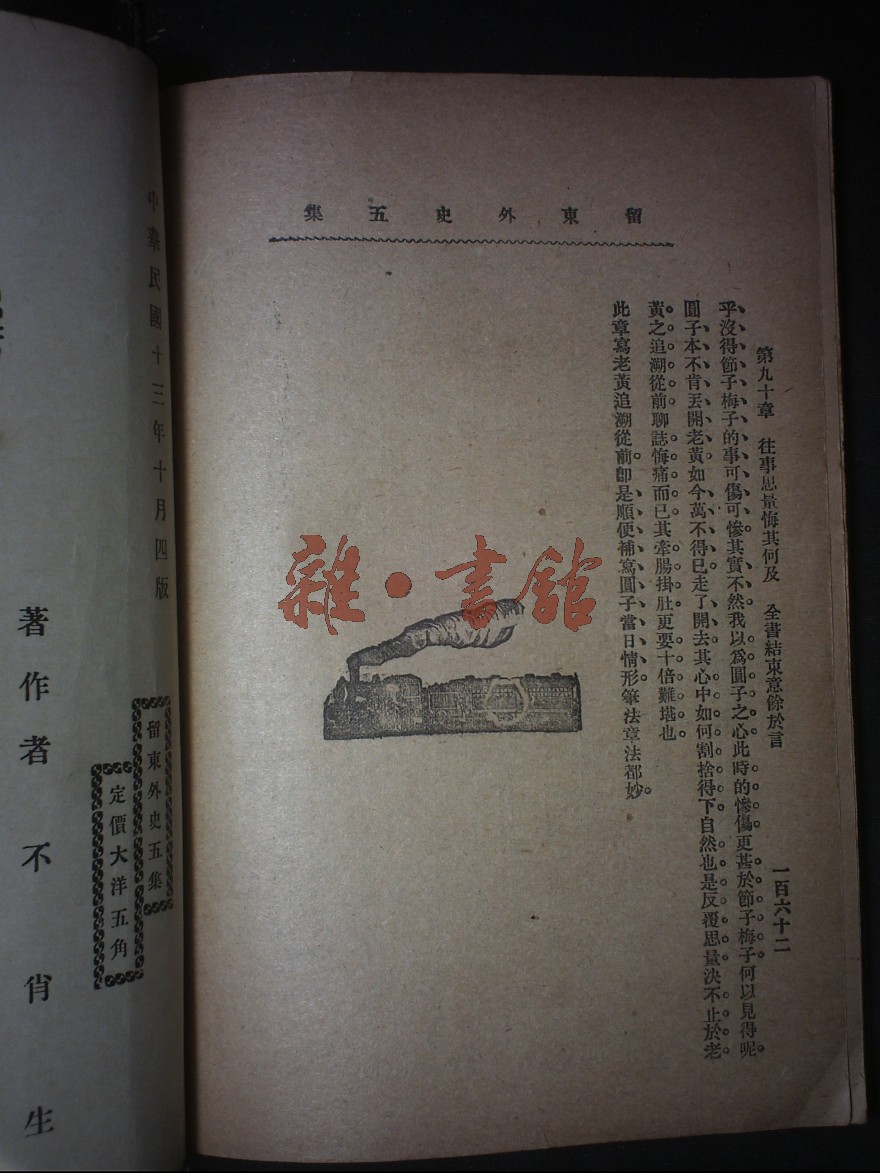 留東外史五集
第九十章　往事思量悔其何及　全書結束意餘於言　一百六十二
乎沒得節子梅子的事可傷可慘其實不然我以爲圓子之心此時的慘傷更甚於節子梅子何以見得呢
圓子本不肯丟開老黃如今萬不得已走了開去其心中如何割捨得下自然也是反覆思量決不止於老
黃之追溯從前聊誌悔痛而已其牽腸掛肚更要十倍難堪也
此章寫老黃追溯從前卽是順便補寫圓子當日情形筆法章法都妙
雜·書館
中華民國十三年十月四版
留東外史五集
定價大洋五角
著作者不肖生